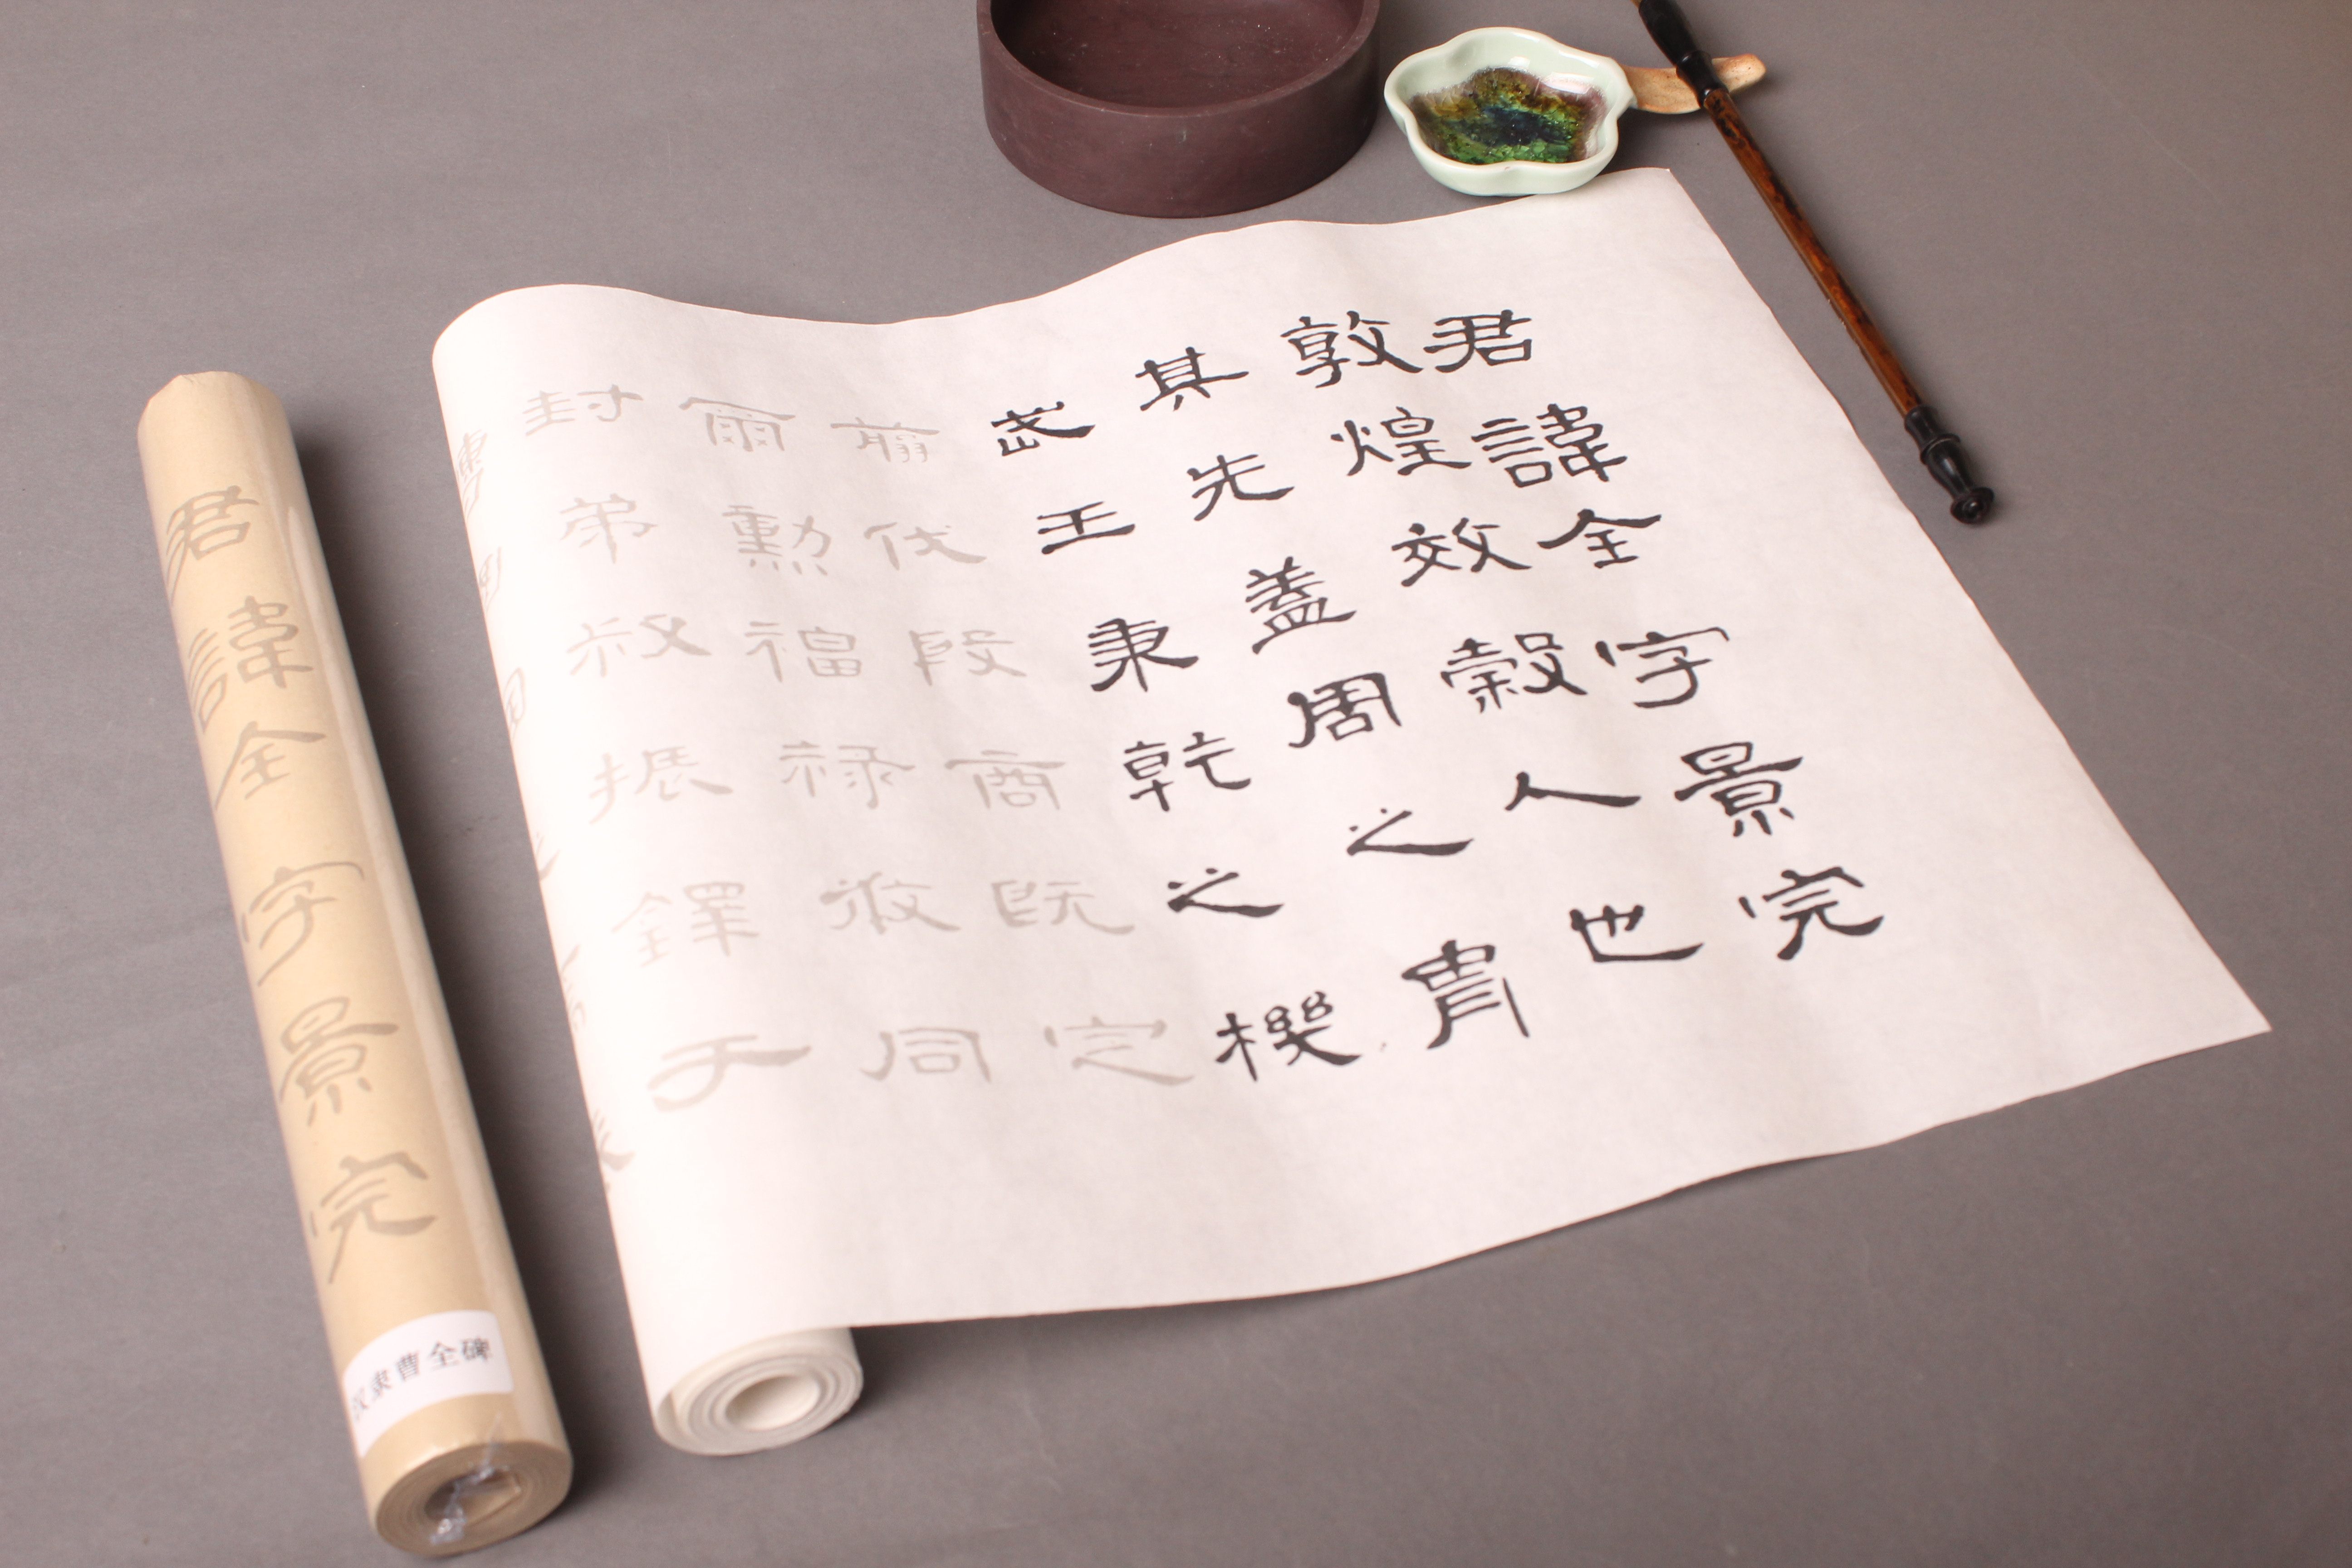 君諱全字景完
敦煌效穀人也
其先蓋周之胄
武王秉乾之機
翦伐殷商既定
爾勲福祿攸同
封弟叔振鐸于
君諱全字景完
汉隶曹全碑